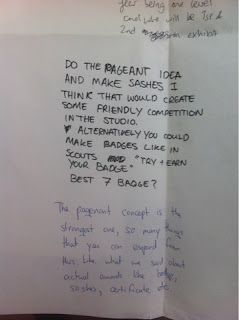 year being one level
and who will be 1st &
2nd exhibit
DO THE PAGEANT IDEA
AND MAKE SASHES I
THINK THAT WOULD CREATE
SOME FRIENDLY COMPETITION
IN THE STUDIO.
ALTERNATIVELY YOU COULD
MAKE BADGES LIKE IN
SCOUTS "TRY + EARN
YOUR BADGE"
BEST 7 BADGE?
The pagenant concept is the
strongest one, so many things
that you can expand from
this like what we said about
actual awards like badge,
sashes, certificate etc.